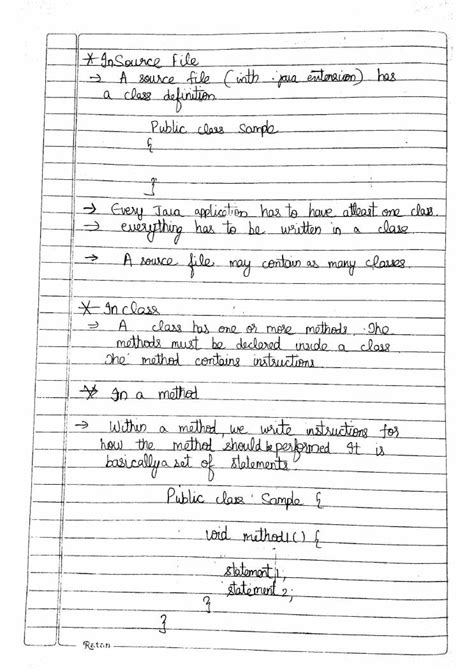 * In Source File
→ A source file (with .java extension) has
a class definition
Public class Sample
{
}
→ Every Java application has to have atleast one class.
→ everything has to be written in a class
→ A source file may contain as many classes.
* In class
→ A class has one or more methods. The
methods must be declared inside a class
The method contains instructions
* In a method
→ Within a method, we write instructions for
how the method should be performed It is
basically a set of statements
Public class Sample {
void method1() {
statement 1;
statement 2;
}
}
Ratan